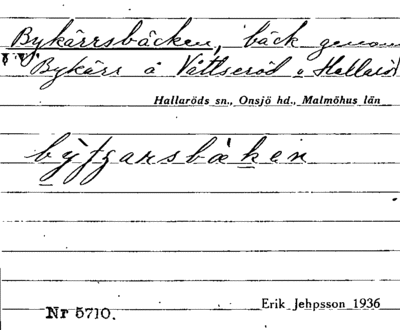 Bykärrsbäcken, bäck genom
Bykärr å Vättseröd o Hallaröd
Hallaröds sn., Onsjö hd., Malmöhus län
Erik Jehpsson 1936
Nr 5710.